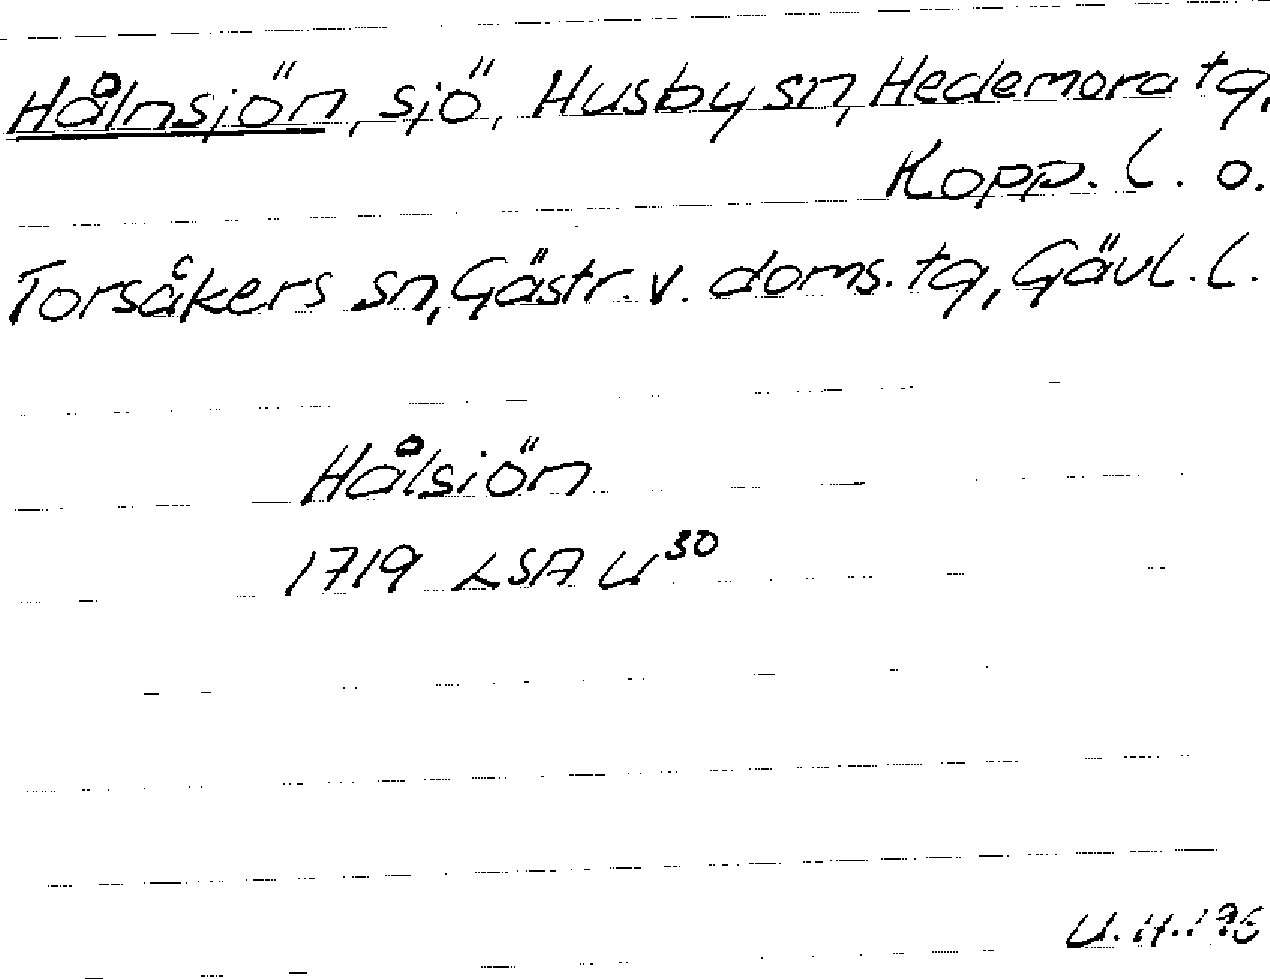 Hålnsjön, sjö, Husby sn, Hedemora tg,
Kopp. l. o.
Torsåkers sn, Gästr. v. doms. tg, Gävl. l.
Hålsiön
1719 LSA U30